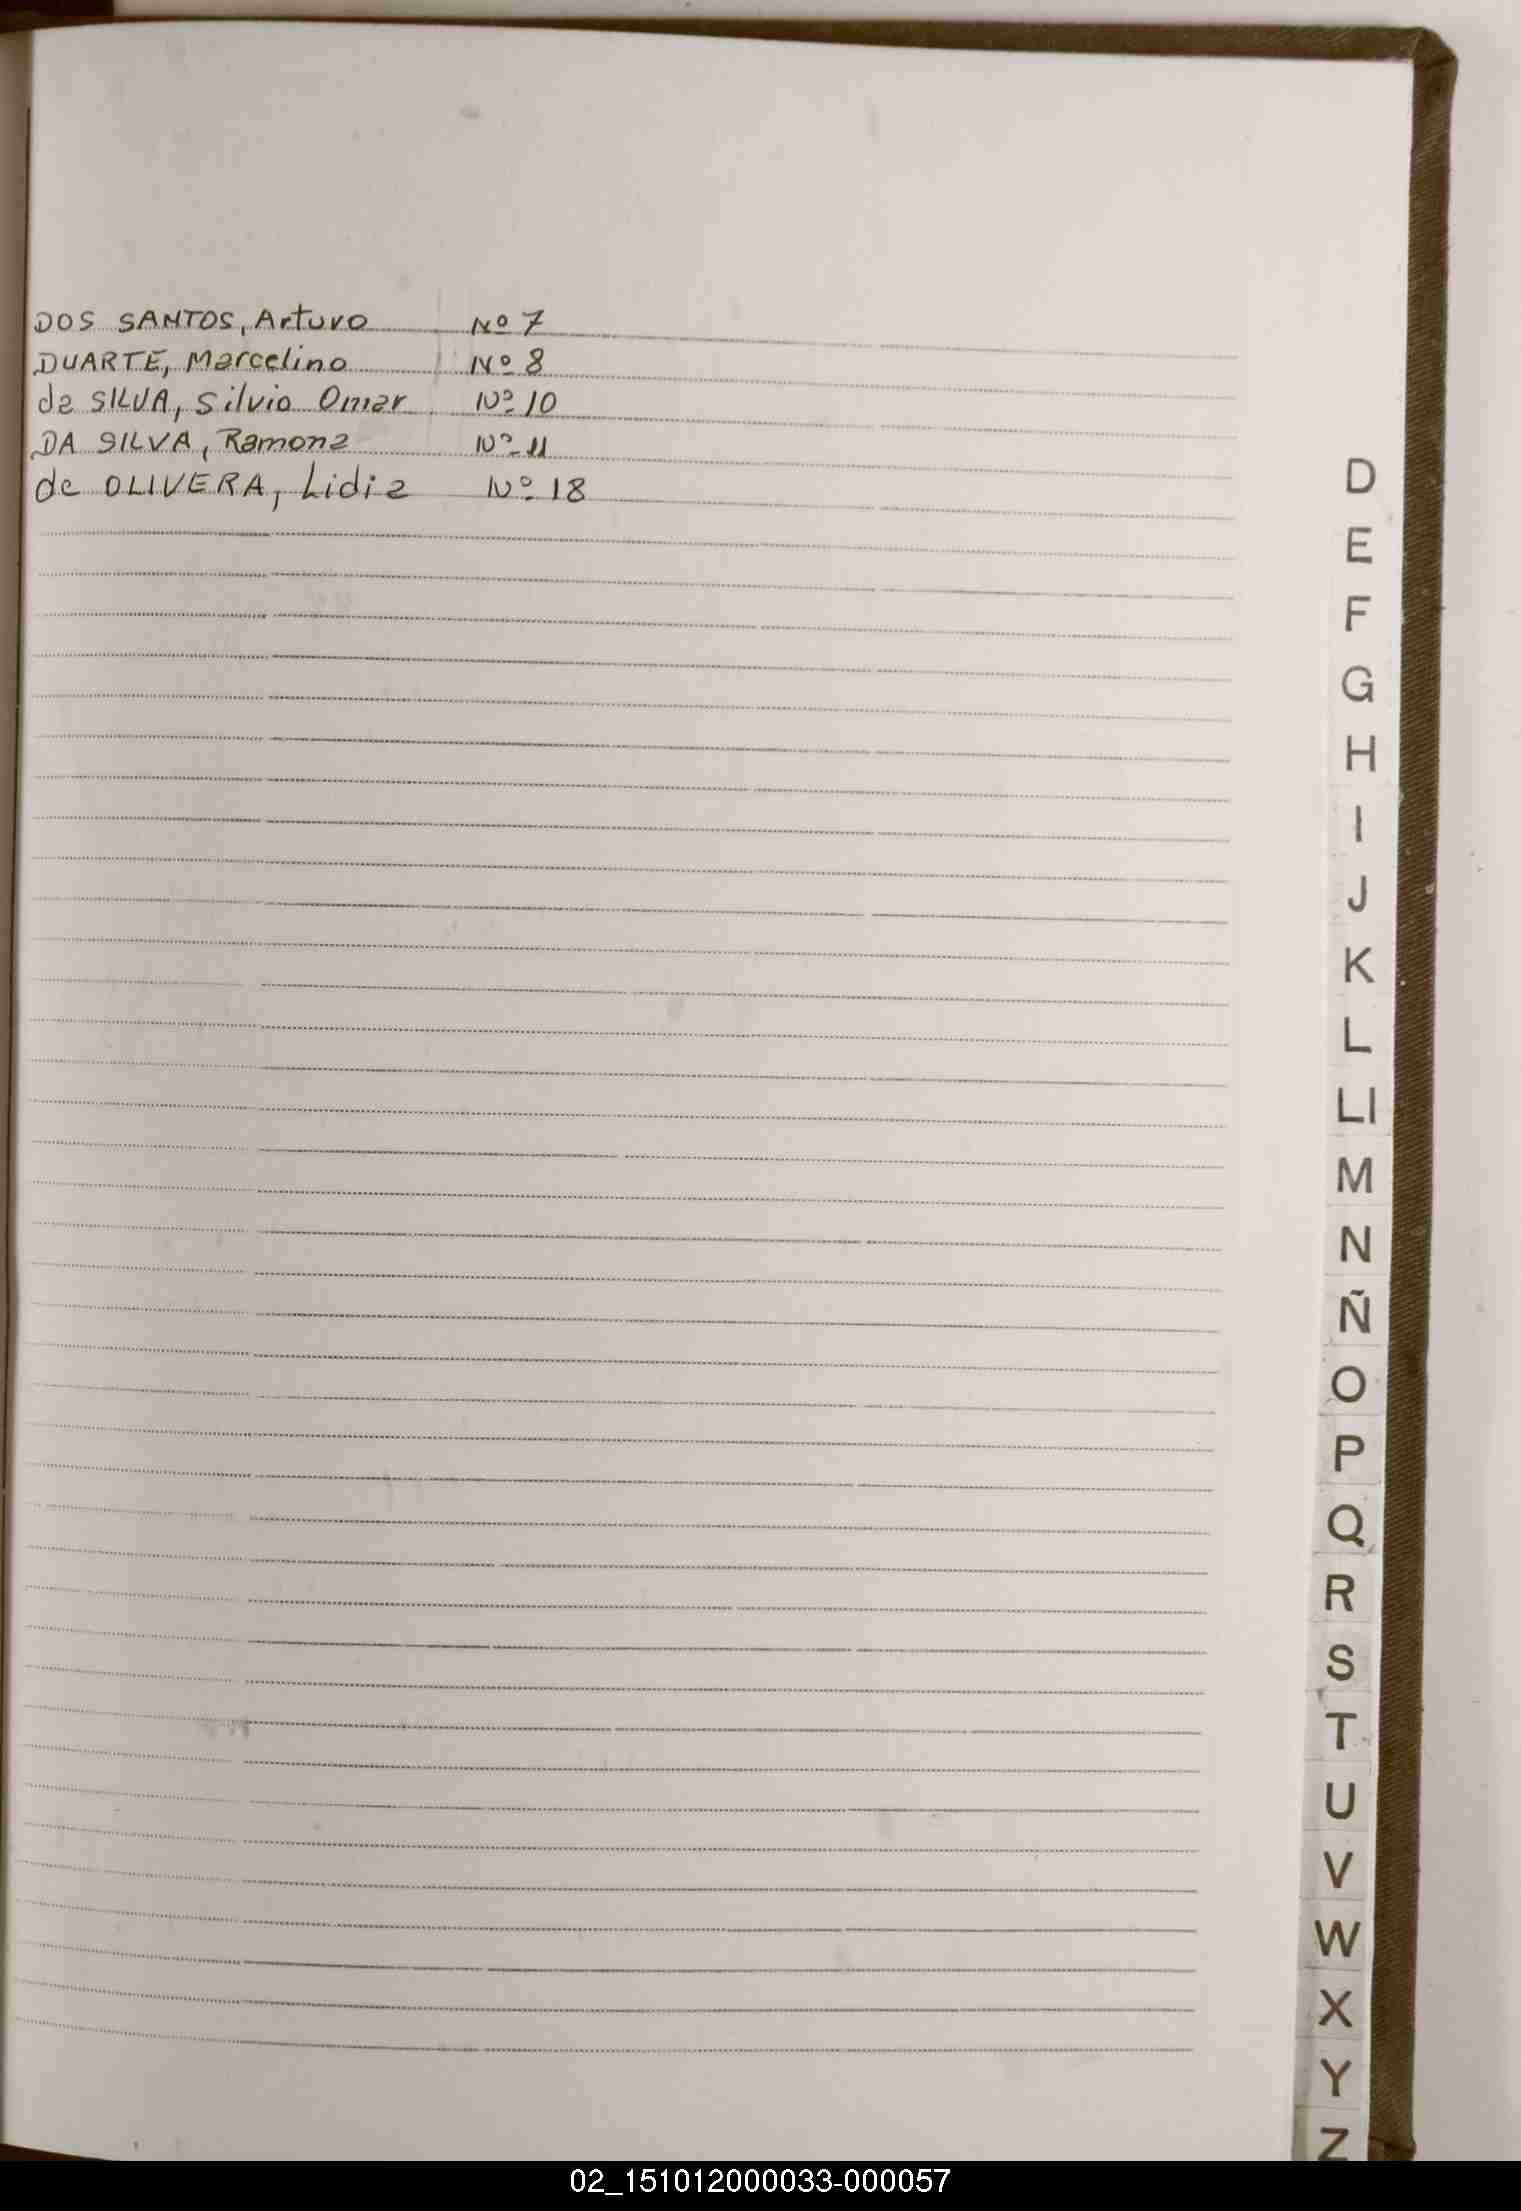 DOS SANTOS, Arturo Nº 7
DUARTE, Marcelino Nº 8
da SILVA, Silvio Omar Nº 10
DA SILVA, Ramona Nº 11
de OLIVERA, Lidia Nº 18
D
E
F
G
H
I
J
K
L
Ll
M
N
Ñ
O
P
Q
R
S
T
U
V
W
X
Y
Z
02_151012000033-000057